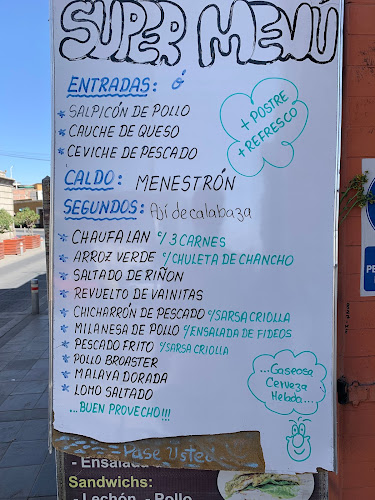 SUPER MENÚ
ENTRADAS: ó
* SALPICÓN DE POLLO
* CAUCHE DE QUESO
* CEVICHE DE PESCADO
+ POSTRE
+ REFRESCO
CALDO: MENESTRÓN
SEGUNDOS: Ají de calabaza
* CHAUFA LAN c/ 3 CARNES
* ARROZ VERDE c/ CHULETA DE CHANCHO
* SALTADO DE RIÑON
* REVUELTO DE VAINITAS
* CHICHARRÓN DE PESCADO c/SARSA CRIOLLA
* MILANESA DE POLLO c/ENSALADA DE FIDEOS
* PESCADO FRITO c/SARSA CRIOLLA
* POLLO BROASTER
* MALAYA DORADA
* LOMO SALTADO
...BUEN PROVECHO!!!
...Gaseosa
Cerveza
Helada...
Pase Usted
- Ensalada
Sandwichs:
- Lechón - Pollo